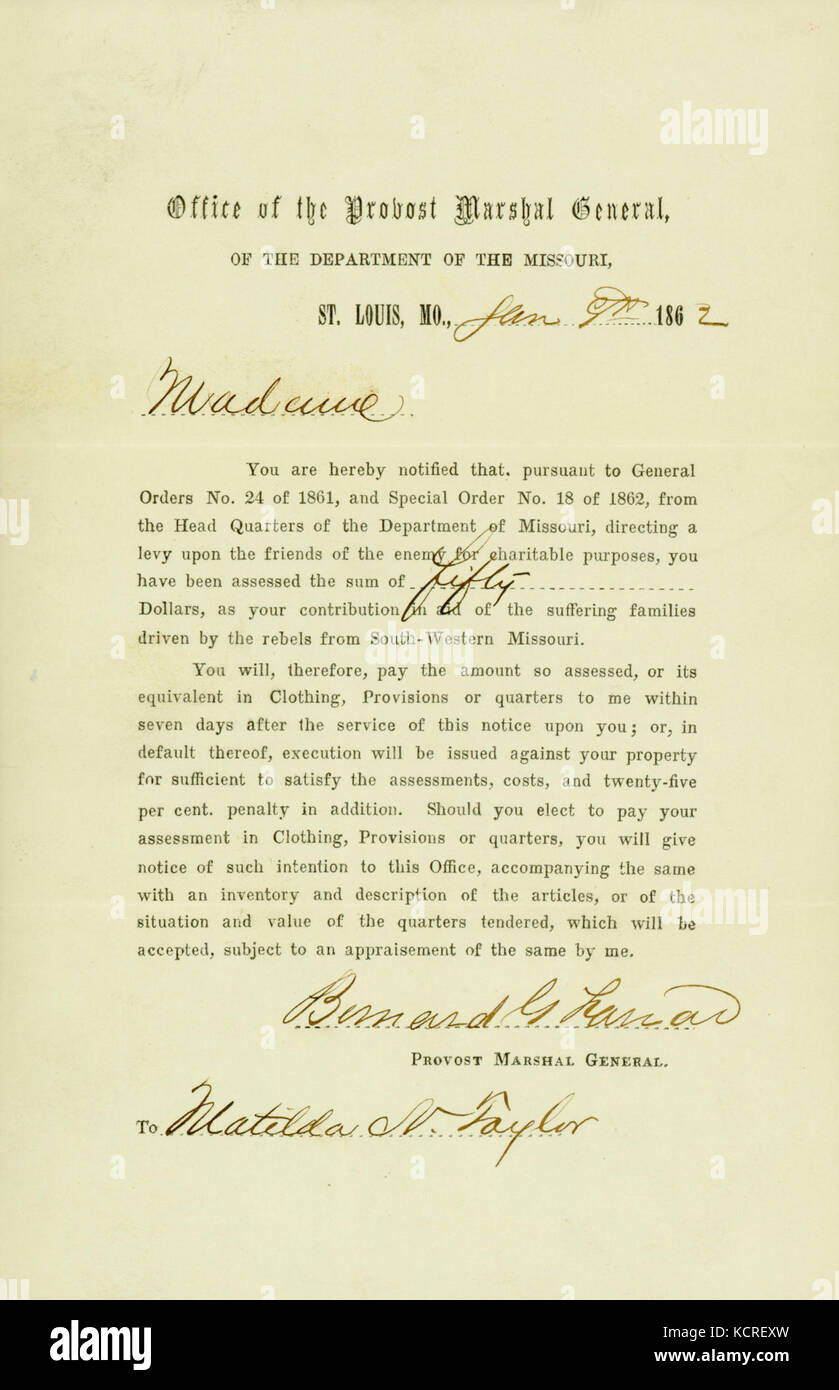 Office of the Provost Marshal General,
OF THE DEPARTMENT OF THE MISSOURI,
ST. LOUIS, MO., Jan 9th 1862
Madame
You are hereby notified that. pursuant to General
Orders No. 24 of 1861, and Special Order No. 18 of 1862, from
the Head Quarters of the Department of Missouri, directing a
levy upon the friends of the enemy for charitable purposes, you
have been assessed the sum of fifty
Dollars, as your contribution in aid of the suffering families
driven by the rebels from South-Western Missouri.
You will, therefore, pay the amount so assessed, or its
equivalent in Clothing, Provisions or quarters to me within
seven days after the service of this notice upon you; or, in
default thereof, execution will be issued against your property
for sufficient to satisfy the assessments, costs, and twenty-five
per cent. penalty in addition. Should you elect to pay your
assessment in Clothing, Provisions or quarters, you will give
notice of such intention to this Office, accompanying the same
with an inventory and description of the articles, or of the
situation and value of the quarters tendered, which will be
accepted, subject to an appraisement of the same by me.
Bernard G Farrar
PROVOST MARSHAL GENERAL.
To Matilda N. Taylor
alamy
a
alamy
Image ID: KCREXW
www.alamy.com